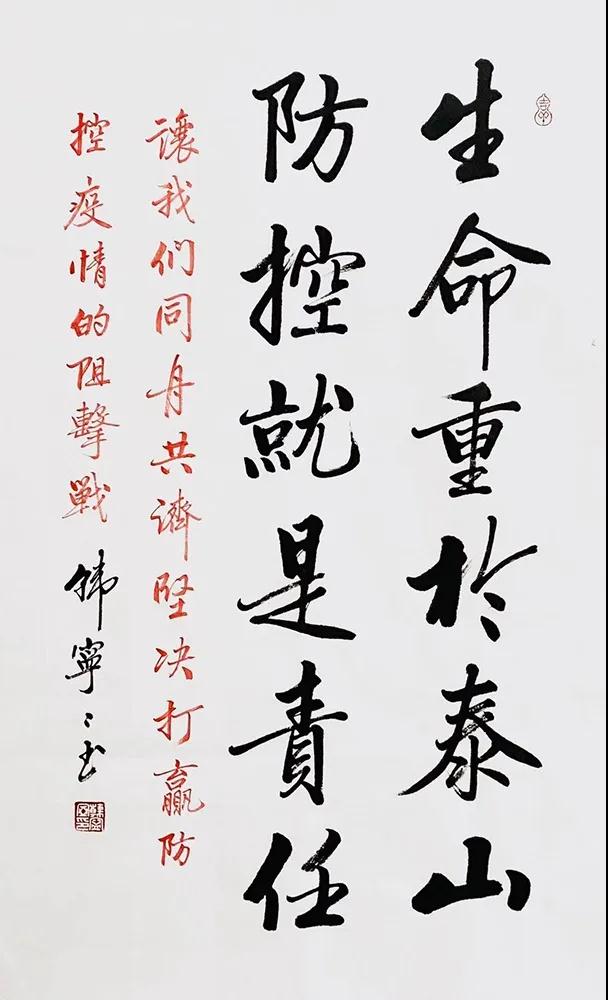 生命重於泰山
防控就是責任
讓我们同舟共濟堅决打贏防
控疫情的阻擊戰
韩寧〻书